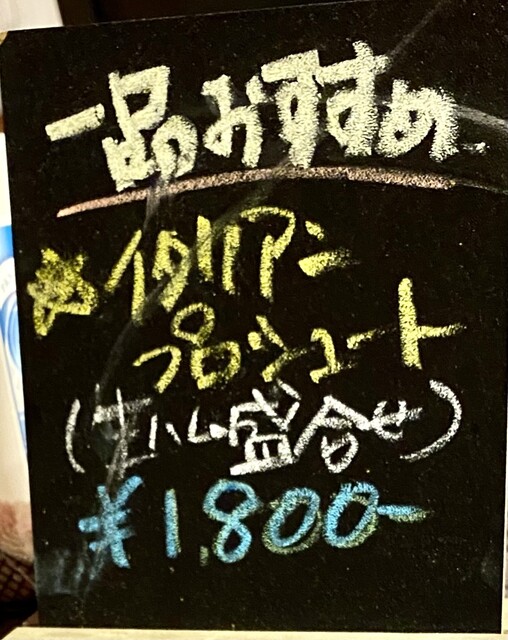 一品おすすめ
☆イタリアン
プロシュート
(生ハム盛合せ)
¥1,800-